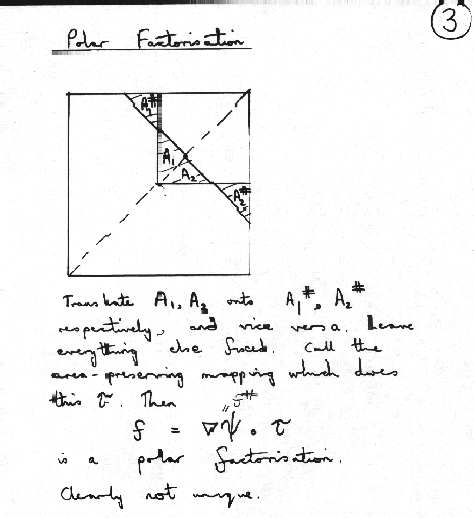 3
Polar Factorisation
A₁#
A₁
A₂
A₂#
Translate A₁, A₂ onto A₁#, A₂#
respectively, and vice versa. Leave
everything else fixed. Call the
area-preserving mapping which does
this τ. Then
f = ∇ψ ∘ τ
is a polar factorisation.
Clearly not unique.